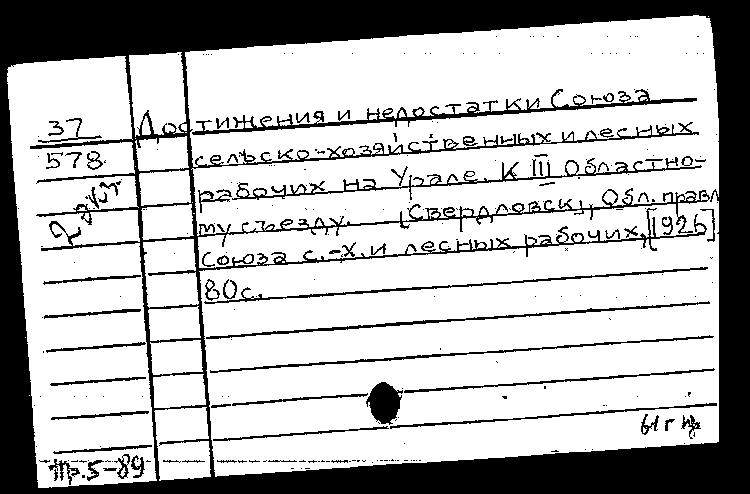 37
578
2 экз
Достижения и недостатки Союза
сельско-хозяйственных и лесных
рабочих на Урале. К III Областно-
му съезду. [Свердловск], Обл. правл
Союза с.-х. и лесных рабочих, [1926]
80 с.
61 г
Пр. 5-89